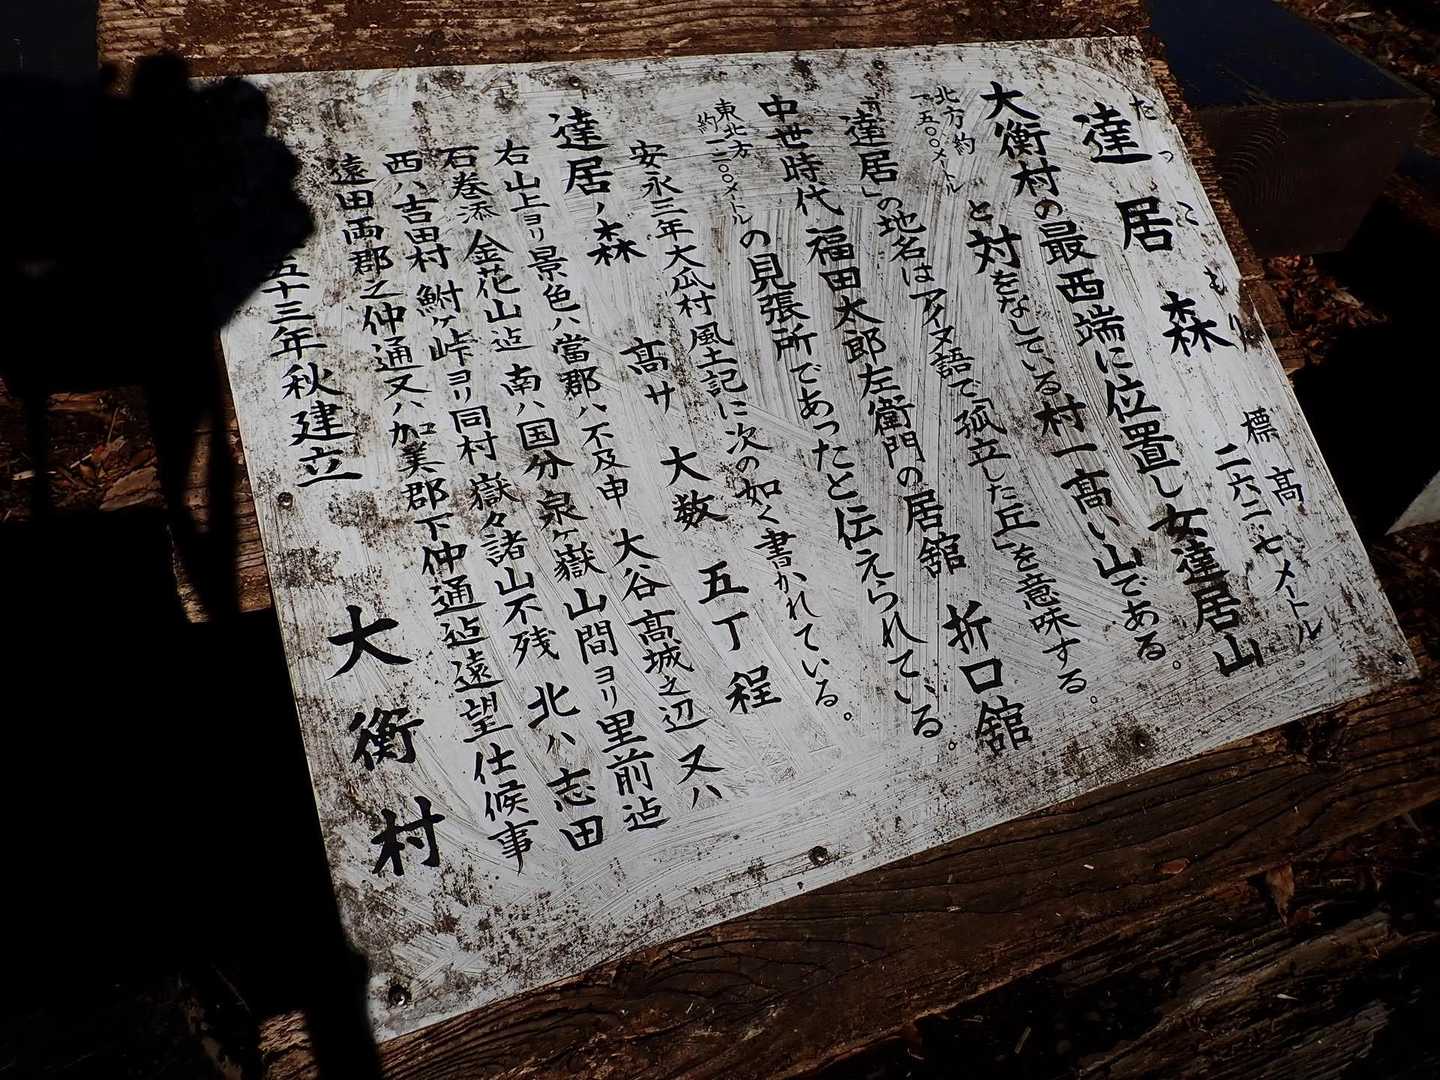 達居森
たっこもり
標高
二六二・七メートル
大衡村の最西端に位置し女達居山
北方約
一五〇〇メートル
と対をなしている村一高い山である。
「達居」の地名はアイヌ語で「孤立した丘」を意味する。
中世時代 福田太郎左衛門の居舘 折口舘
東北方
約一二〇〇メートル
の見張所であったと伝えられている。
安永三年大瓜村風土記に次の如く書かれている。
達居ノ森 高サ 大数 五丁程
右山上ヨリ景色ハ當郡ハ不及申 大谷高城之辺 又ハ
石巻添 金花山迠 南ハ国分 泉ヶ嶽山間ヨリ里前迠
西ハ吉田村 鮒ヶ峠ヨリ同村 嶽々諸山不残 北ハ志田
遠田両郡之仲通又ハ加美郡下仲通迠遠望仕候事
五十三年秋建立
大衡村